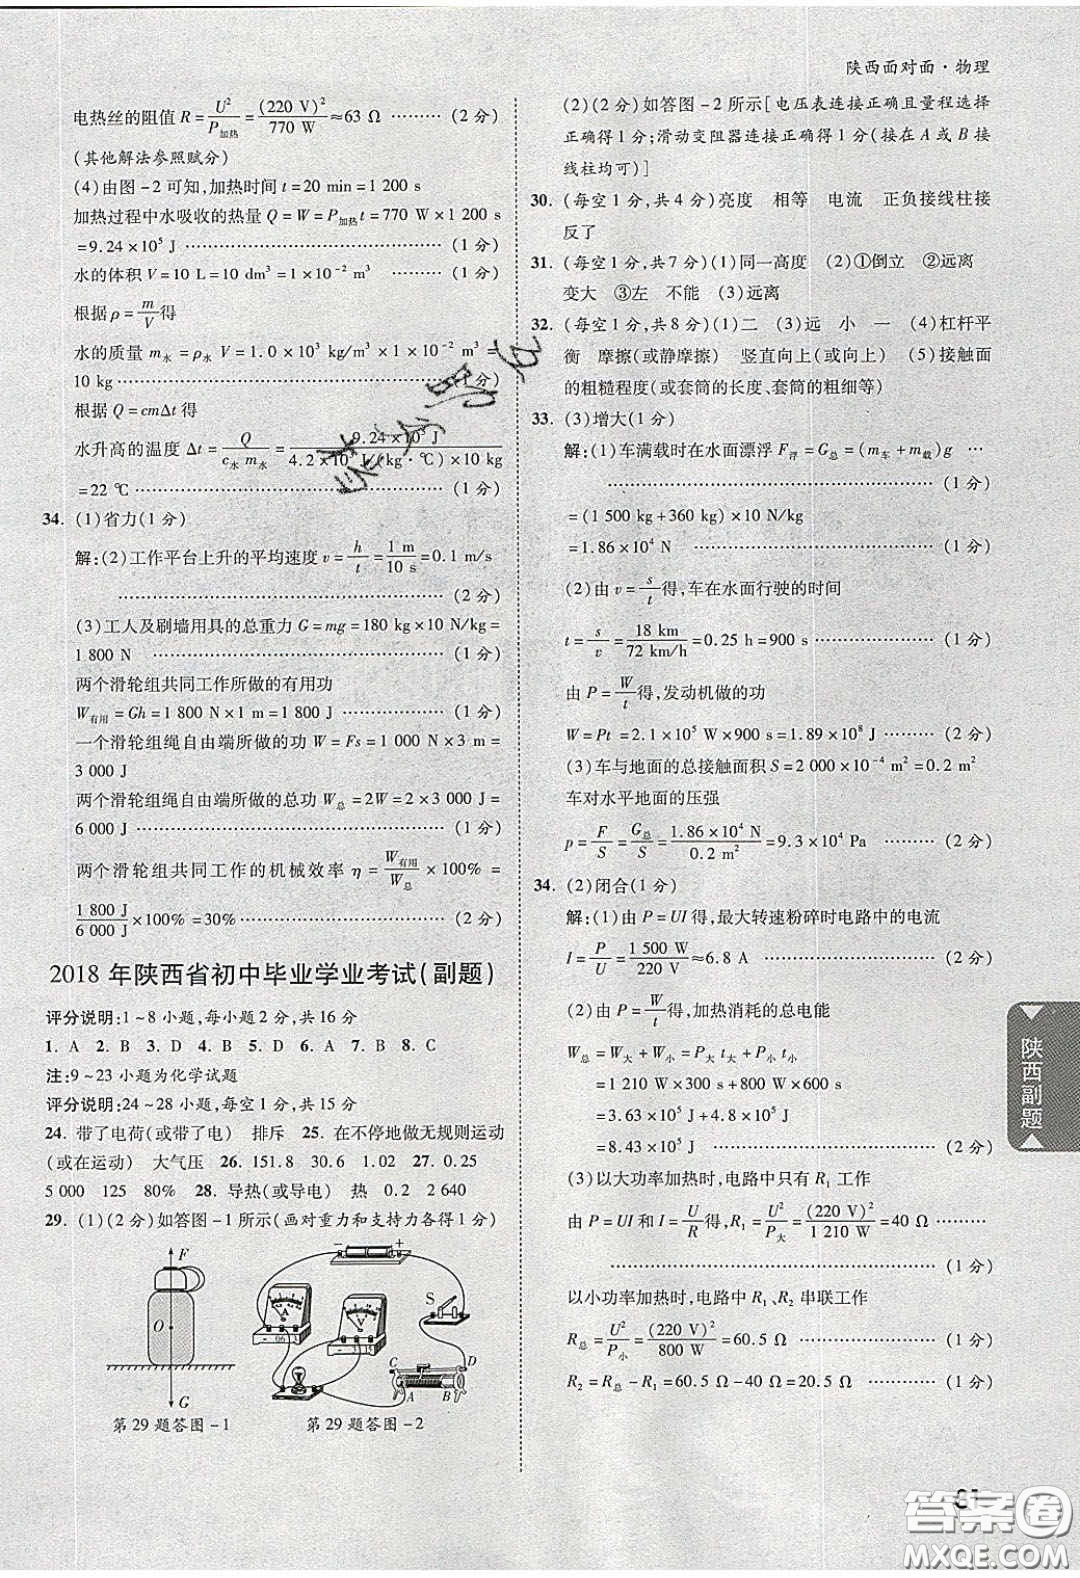 陕西面对面·物理
电热丝的阻值 R = U²/P加热 = (220 V)²/770 W ≈63 Ω ……… (2 分)
(其他解法参照赋分)
(4)由图-2 可知,加热时间 t=20 min=1 200 s
加热过程中水吸收的热量 Q = W = P加热 t = 770 W×1 200 s
=9.24×10⁵ J ……………………………… (1 分)
水的体积 V=10 L=10 dm³=1×10⁻² m³ ……… (1 分)
根据 ρ = m/V 得
水的质量 m水 = ρ水 V = 1.0×10³ kg/m³×1×10⁻² m³ =
10 kg ……………………………………… (1 分)
根据 Q = cmΔt 得
水升高的温度 Δt = Q/(c水 m水) = 9.24×10⁵ J/(4.2×10³ J/(kg·℃)×10 kg)
=22 ℃ ……………………………………… (1 分)
34. (1)省力(1 分)
解:(2)工作平台上升的平均速度 v = h/t = 1 m/10 s = 0.1 m/s
……………………………………… (2 分)
(3)工人及刷墙用具的总重力 G = mg = 180 kg×10 N/kg=
1 800 N ……………………………………… (1 分)
两个滑轮组共同工作所做的有用功
W有用 = Gh = 1 800 N×1 m = 1 800 J ……………… (1 分)
一个滑轮组绳自由端所做的功 W = Fs = 1 000 N×3 m =
3 000 J
两个滑轮组绳自由端所做的总功 W总 = 2W = 2×3 000 J=
6 000 J ……………………………………… (1 分)
两个滑轮组共同工作的机械效率 η = W有用/W总 ×100% =
1 800 J/6 000 J ×100% = 30% ……………………… (2 分)
2018 年陕西省初中毕业学业考试(副题)
评分说明:1~8 小题,每小题 2 分,共 16 分
1. A 2. B 3. D 4. B 5. B 6. A 7. B 8. C
注:9~23 小题为化学试题
评分说明:24~28 小题,每空 1 分,共 15 分
24. 带了电荷(或带了电) 排斥 25. 在不停地做无规则运动
(或在运动) 大气压 26. 151.8 30.6 1.02 27. 0.25
5 000 125 80% 28. 导热(或导电) 热 0.2 2 640
29. (1)(2 分)如答图-1 所示(画对重力和支持力各得 1 分)
F
O
G
第 29 题答图-1
- +
A
V
S
C D
A B
第 29 题答图-2
(2)(2 分)如答图-2 所示[电压表连接正确且量程选择
正确得 1 分;滑动变阻器连接正确得 1 分(接在 A 或 B 接
线柱均可)]
30. (每空 1 分,共 4 分)亮度 相等 电流 正负接线柱接
反了
31. (每空 1 分,共 7 分)(1)同一高度 (2)①倒立 ②远离
变大 ③左 不能 (3)远离
32. (每空 1 分,共 8 分)(1)二 (3)远 小 一 (4)杠杆平
衡 摩擦(或静摩擦) 竖直向上(或向上) (5)接触面
的粗糙程度(或套筒的长度、套筒的粗细等)
33. (3)增大(1 分)
解:(1)车满载时在水面漂浮 F浮 = G总 = (m车 + m载)g …
……………………………………… (1 分)
= (1 500 kg+360 kg)×10 N/kg
= 1.86×10⁴ N ……………………………… (1 分)
(2)由 v = s/t 得,车在水面行驶的时间
t = s/v = 18 km/72 km/h = 0.25 h = 900 s ……………… (1 分)
由 P = W/t 得,发动机做的功
W = Pt = 2.1×10⁵ W×900 s = 1.89×10⁸ J ……… (2 分)
(3)车与地面的总接触面积 S = 2 000×10⁻⁴ m² = 0.2 m²
车对水平地面的压强
p = F/S = G总/S = 1.86×10⁴ N/0.2 m² = 9.3×10⁴ Pa ……… (2 分)
34. (2)闭合(1 分)
解:(1)由 P = UI 得,最大转速粉碎时电路中的电流
I = P/U = 1 500 W/220 V ≈ 6.8 A ……………………… (1 分)
(2)由 P = W/t 得,加热消耗的总电能
W总 = W大 + W小 = P大 t大 + P小 t小
= 1 210 W×300 s+800 W×600 s
= 3.63×10⁵ J+4.8×10⁵ J
= 8.43×10⁵ J ……………………………… (2 分)
(3)以大功率加热时,电路中只有 R₁ 工作
由 P = UI 和 I = U/R 得,R₁ = U²/P大 = (220 V)²/1 210 W = 40 Ω
……………………………………… (1 分)
以小功率加热时,电路中 R₁、R₂ 串联工作
R总 = U²/P小 = (220 V)²/800 W = 60.5 Ω ……………… (1 分)
R₂ = R总 - R₁ = 60.5 Ω-40 Ω = 20.5 Ω ……… (1 分)
陕西副题
答案圈
MXQE.COM